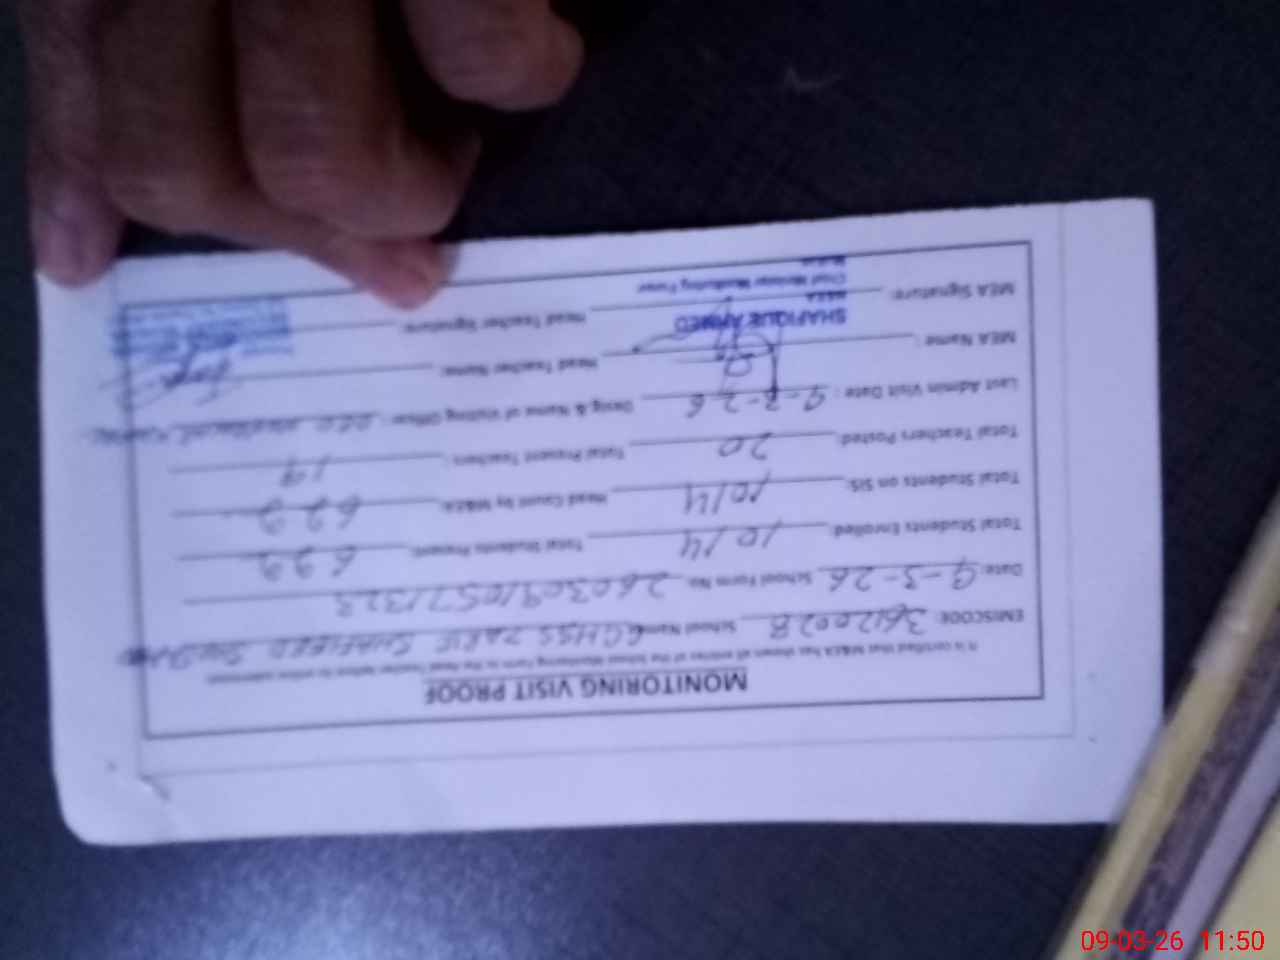 MONITORING VISIT PROOF
It is certified that M&EA has shown all entries of the School Monitoring Form to the Head Teacher before its online submission
EMISCODE: 36120028 School Name: GGHSS
Date: 9-3-26 School Form No. 26030910571323
Total Students Enrolled: 1014 Total Students Present: 699
Total Students on SIS: 1014 Head Count by M&EA: 699
Total Teachers Posted: 20 Total Present Teachers: 19
Last Admin Visit Date: 9-3-26 Desig & Name of Visiting Officer:
MEA Name: Head Teacher Name:
SHAFIQUE AHMED
MEA Signature: Head Teacher Signature:
Chief Minister Monitoring Force
09-03-26 11:50